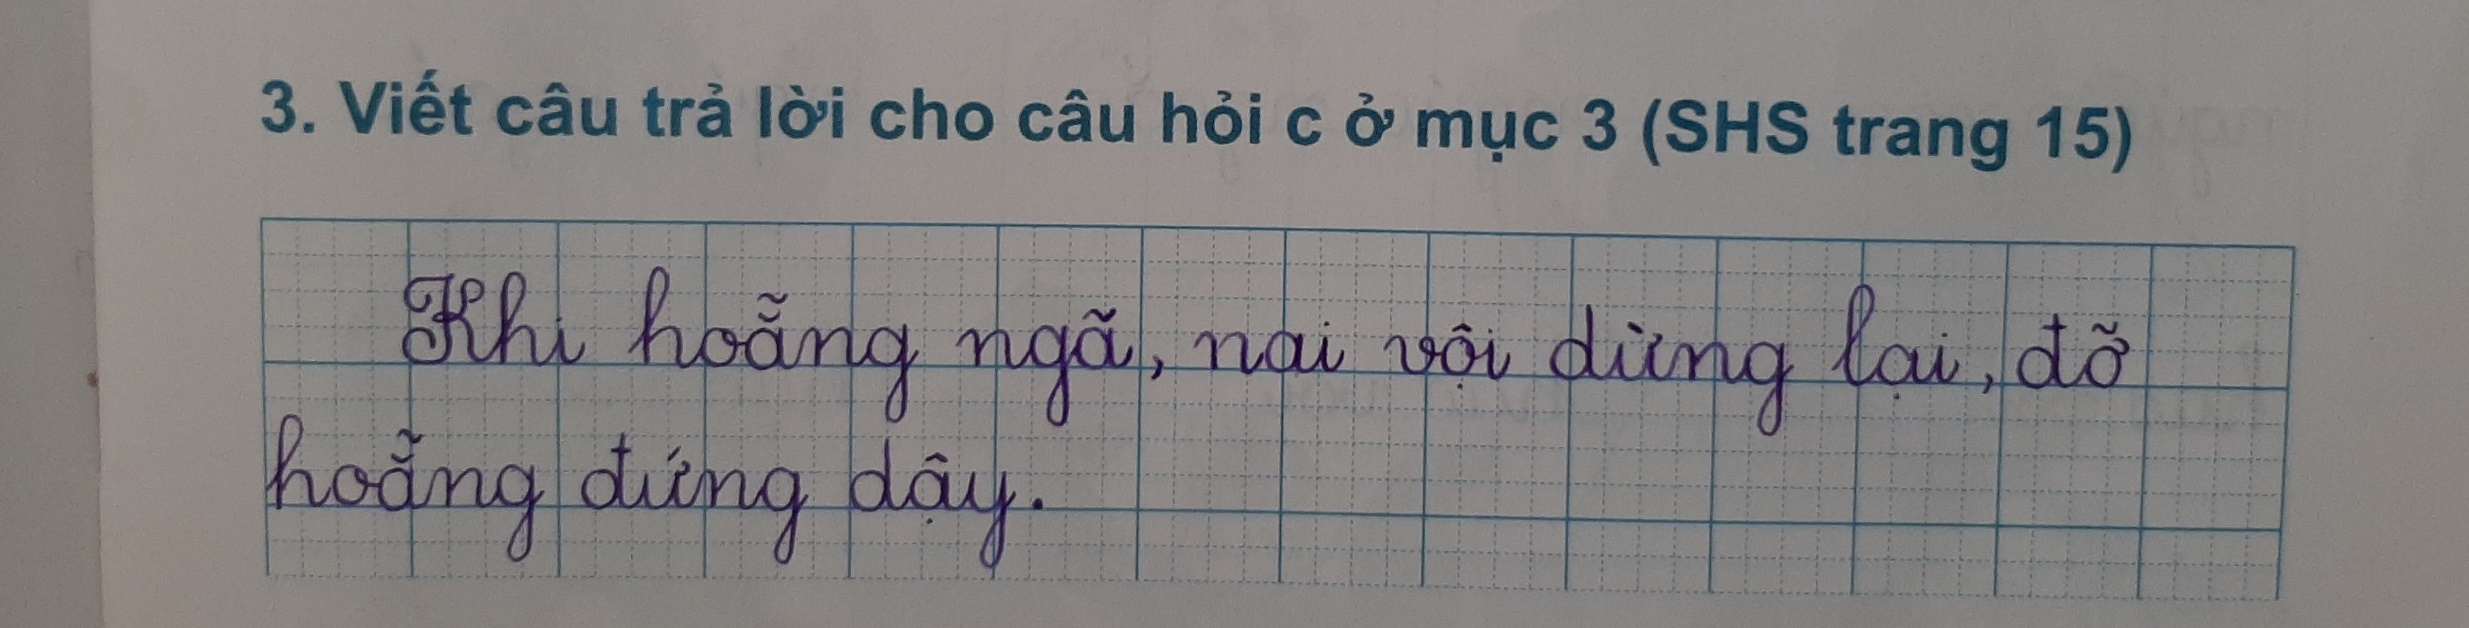 3. Viết câu trả lời cho câu hỏi c ở mục 3 (SHS trang 15)
Khi hoẵng ngã, nai vội dừng lại, đỡ
hoẵng đứng dậy.